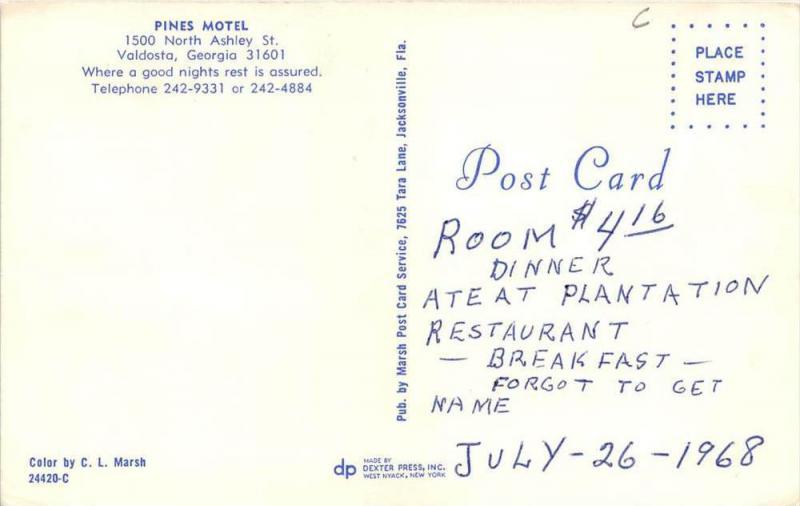 PINES MOTEL
1500 North Ashley St.
Valdosta, Georgia 31601
Where a good nights rest is assured.
Telephone 242-9331 or 242-4884
Color by C. L. Marsh
24420-C
Pub. by Marsh Post Card Service, 7625 Tara Lane, Jacksonville, Fla.
dp
MADE BY
DEXTER PRESS, INC.
WEST NYACK, NEW YORK
C
PLACE
STAMP
HERE
Post Card
ROOM $4 16
DINNER
ATE AT PLANTATION
RESTAURANT
— BREAKFAST —
FORGOT TO GET
NAME
JULY-26-1968